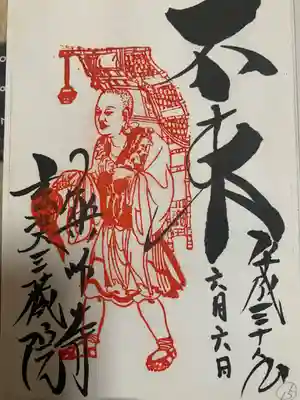 不東
平成三十年
六月六日
薬師寺
玄奘三蔵院